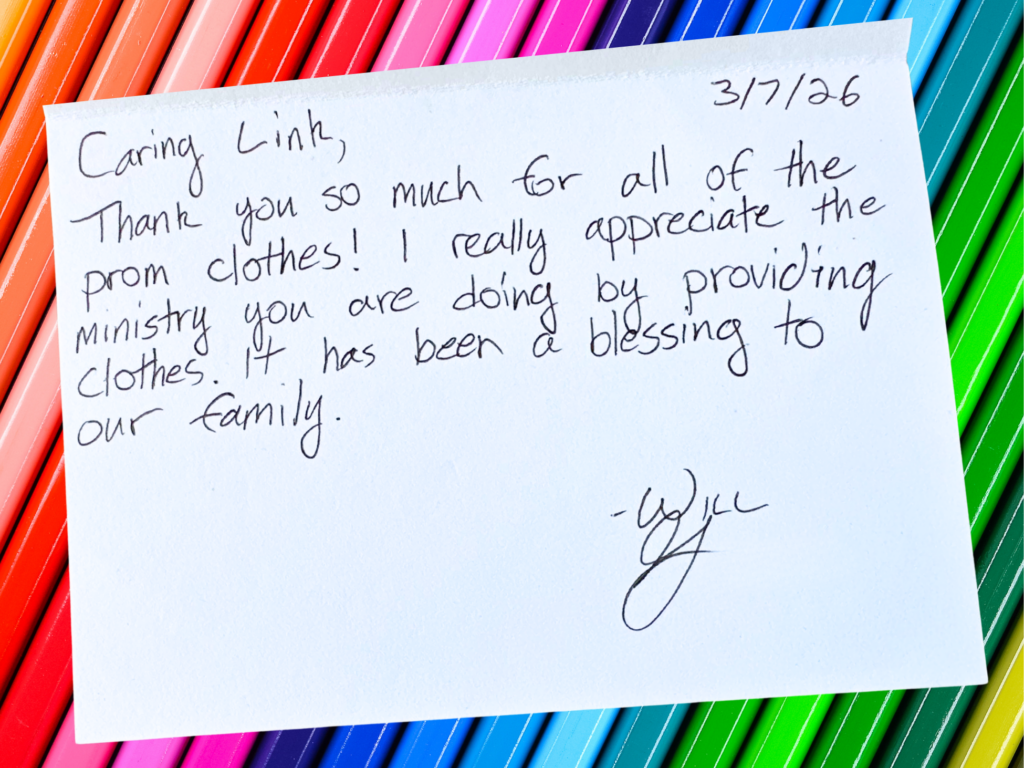 3/7/26
Caring Link,
Thank you so much for all of the
prom clothes! I really appreciate the
ministry you are doing by providing
clothes. It has been a blessing to
our family.
-Will